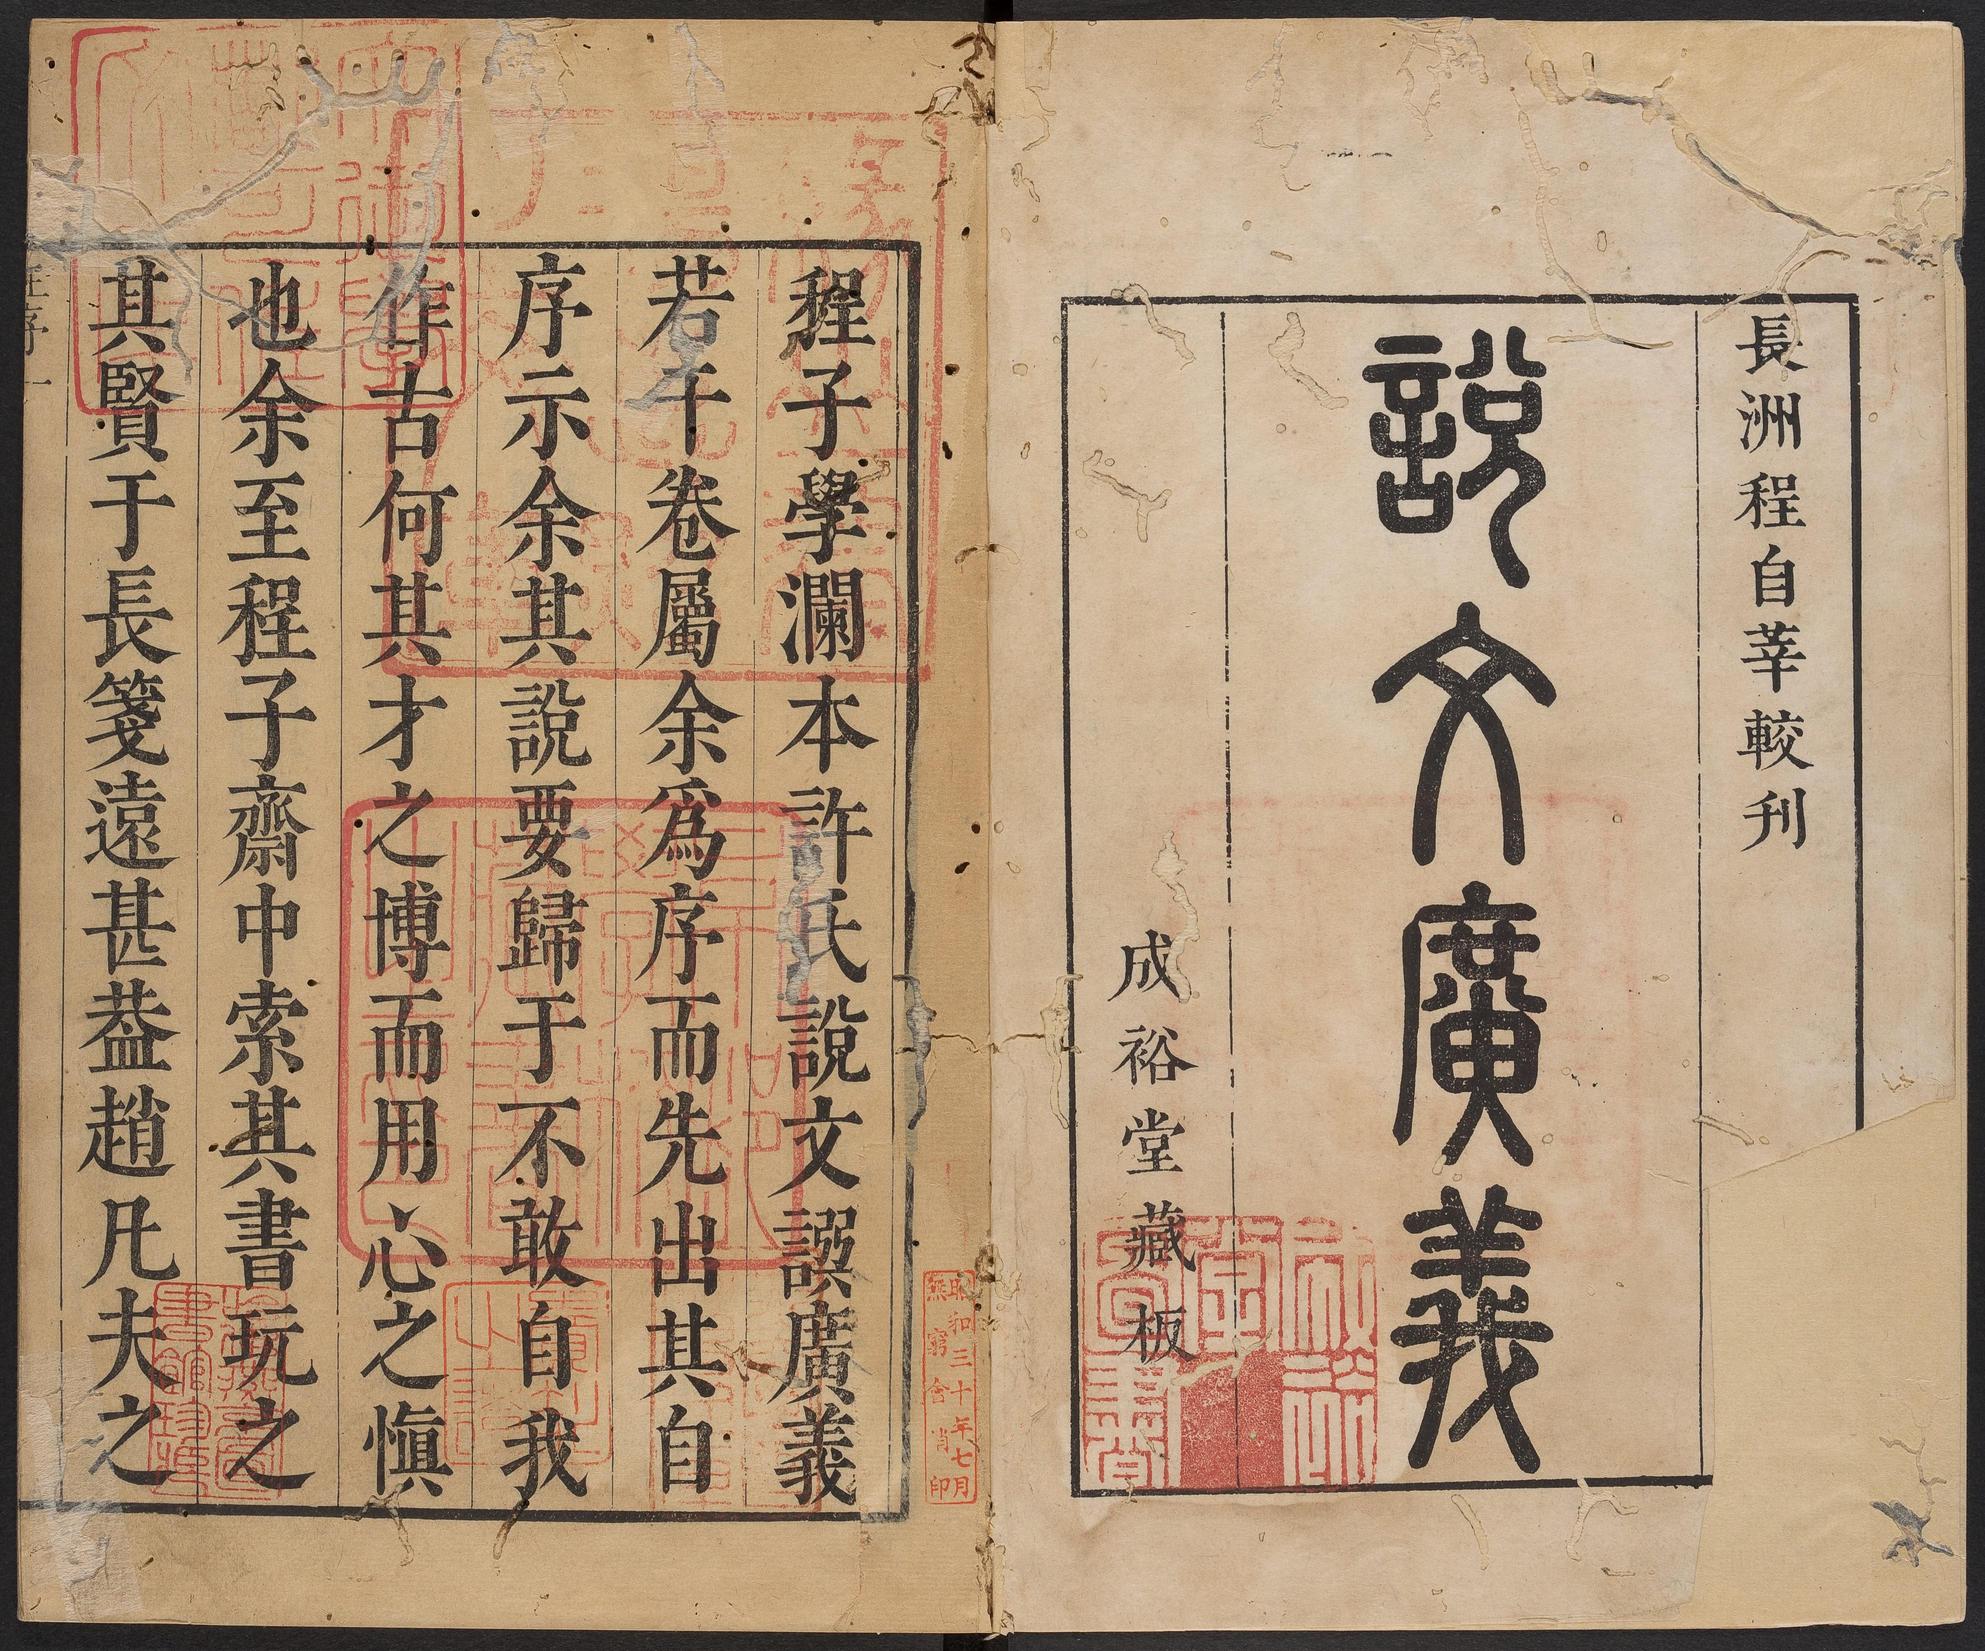 長洲程自莘較刊
說文廣義
成裕堂藏板
程子學瀾本許氏說文譔廣義
若干卷屬余爲序而先出其自
序示余其說要歸于不敢自我
作古何其才之博而用心之愼
也余至程子齋中索其書玩之
其賢于長箋遠甚葢趙凡夫之
昭和三十年七月
無窮會消印